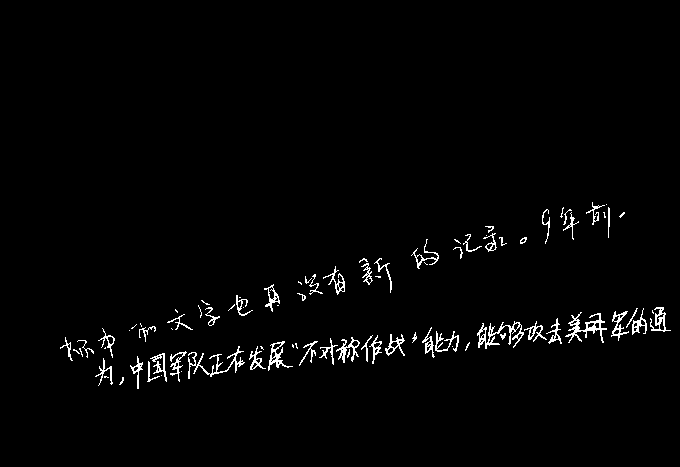 标本和文字也再没有新的记录。9年前,
为,中国军队正在发展"不对称作战"能力,能够攻击美军的通